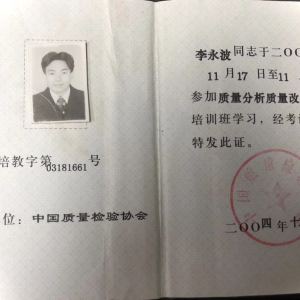 培教字第03181661号
位：中国质量检验协会
李永波同志于二〇〇
11月17日至11
参加质量分析质量改
培训班学习，经考
特发此证。
二〇〇四年十